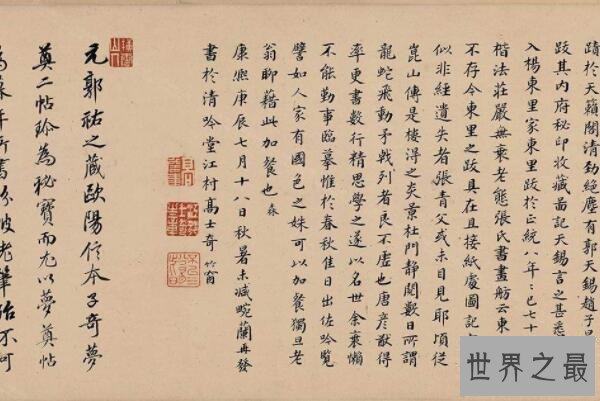 蹟於天籟閣清勁絕塵有郭天錫趙子
跋其內府秘印收藏圖記天錫言之甚悉
入楊東里家東里跋於正統八年已七十
楷法莊嚴無衰老態張氏書畫舫云東
不存今東里之跋具在且接紙處圖記
似非經遺失者張青父或未目見耶頃從
崑山傳是樓得之炎景杜門靜閱數日所謂
龍蛇飛動矛戟列者良不虛也唐彥猷得
率更書數行精思學之遂以名世余衰懶
不能勤事臨摹惟於春秋佳日出佐吟覽
譬如人家有國色之姝可以加餐獨旦老
翁聊藉此加餐也
康熙庚辰七月十八日秋暑未減晼蘭再發
書於清吟堂江村高士奇
元郭祐之藏歐陽信本子奇夢
奠二帖珍為秘寶而尤以夢奠帖
所書
老筆
不可
世界之最